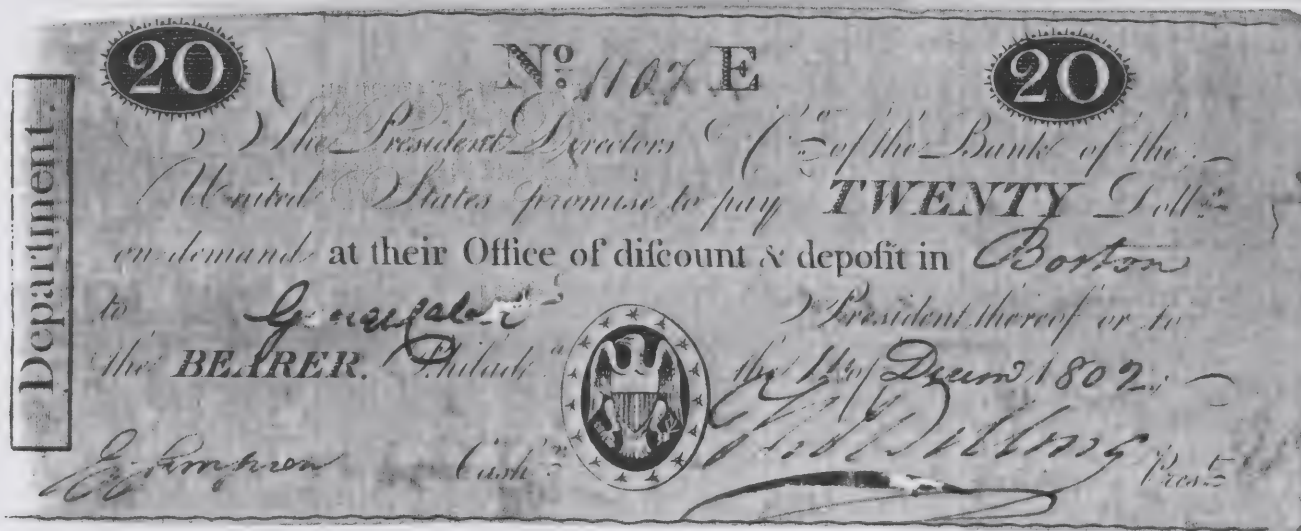 20 Nº 1107 E 20
Department.
The President Directors & Cº of the Bank of the
United States promise to pay TWENTY Dollˢ
on demand at their Office of diſcount & depoſit in Boston
to President thereof or to
the BEARER. Philadª the of Decem 1802.
Simpson Cashʳ Presᵗ